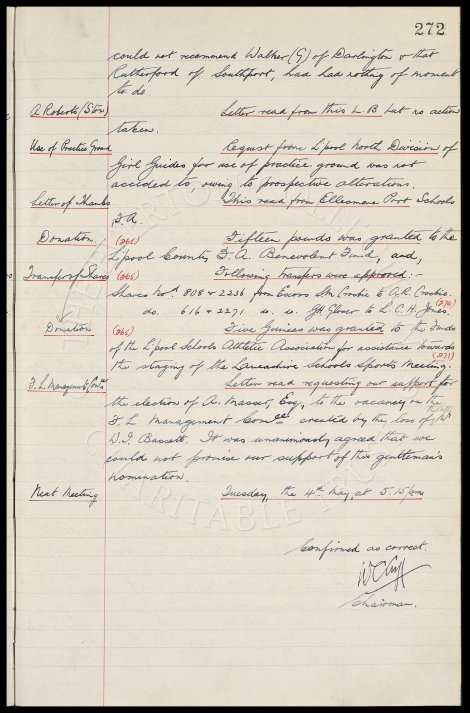 272
could not recommend Walker (G) of Darlington & that
Rutherford of Southport, had had nothing of moment
to do.
A Roberts (Ston) Letter read from this L.B. but no action
taken.
Use of Practice Ground Request from L'pool North Division of
Girl Guides for use of practice ground was not
acceded to owing to prospective alterations.
Letter of Thanks This read from Ellesmere Port Schools
F.A.
Donation (265) Fifteen pounds was granted to the
L'pool County F.A. Benevolent Fund, and,
Transfer of Shares (265) Following transfers were approved:-
Shares Nos. 808 & 2236 from Exors Wm Crosbie to A.R. Crosbie.
do. 616 & 2271 do. do. Glover to L.C.H. Jones. (276)
Donation (265) Five Guineas was granted to the Funds
of the L'pool Schools Athletic Association for assistance towards
the staging of the Lancashire Schools Sports Meeting. (277)
F.L. Management Comtee Letter read requesting our support for
the election of A. Massey, Esq, to the vacancy on the
F.L. Management Comee created by the loss of Mr
W.I. Bassett. It was unanimously agreed that we
could not promise our support of this gentleman's
nomination.
Next Meeting Tuesday, the 4th May, at 5.15 pm
Confirmed as correct.
Chairman.
THE EVERTON
CHARITABLE TRUST